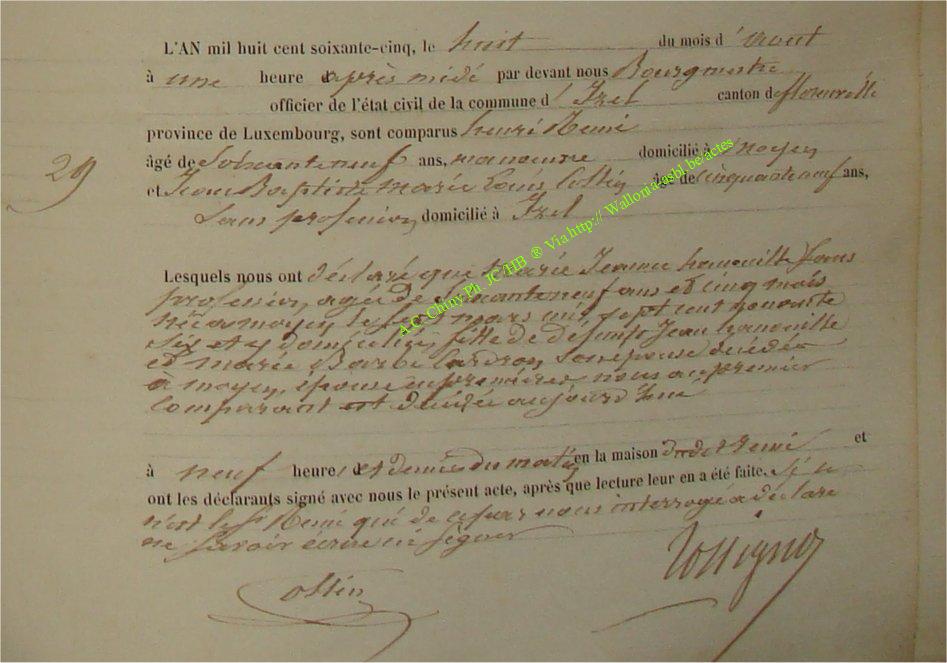 L'AN mil huit cent soixante-cinq, le huit du mois d'Aout
à une heure d après midi par devant nous Bourgmestre
officier de l'état civil de la commune d'Izel canton de florenville
province de Luxembourg, sont comparus henri Remi
29
âgé de Soixante neuf ans, manoeuvre domicilié à moyen
et Jean Baptiste marie Louis Collin âgé de cinquante neuf ans,
Sans profession domicilié à Izel
Lesquels nous ont déclaré que Marie Jeanne hanouille Sans
profession, agée de Soixante neuf ans et cinq mois
née a moyen, le sept mars mil sept cent nonante
Six et y domiciliée, fille de défunts Jean hanouille
et marie Barbe Lardron, Son épouse décédée
à moyen, épouse en premières noces au premier
Comparant est décédée aujourd'hui
à neuf heures et demie du matin en la maison dudit Remi et
ont les déclarants signé avec nous le présent acte, après que lecture leur en a été faite. Si ce
n'est le Sr Remi qui de ce par nous interrogé a déclaré
ne Savoir écrire ni Signer
Collin
Rossignon
A.C. Chiny Ph. JC/HB ® Via http:// Wallonia-asbl.be/actes